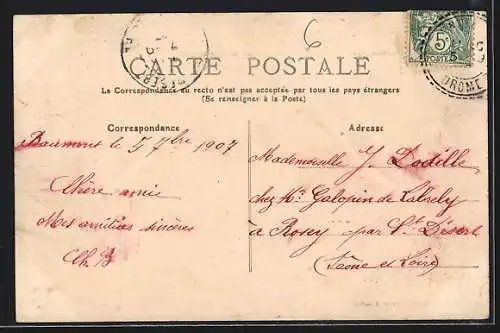 6
CARTE POSTALE
La Correspondance au recto n'est pas acceptée par tous les pays étrangers
(Se renseigner à la Poste)
Correspondance
Adresse
5
POSTE
DROME
le 5 7bre 1907
Chère amie
Mes amitiés sincères
Ch. B
Mademoiselle J. Dodille
chez Mr Galopin de Labrely
à Rosey par St Désert
(Saône et Loire)